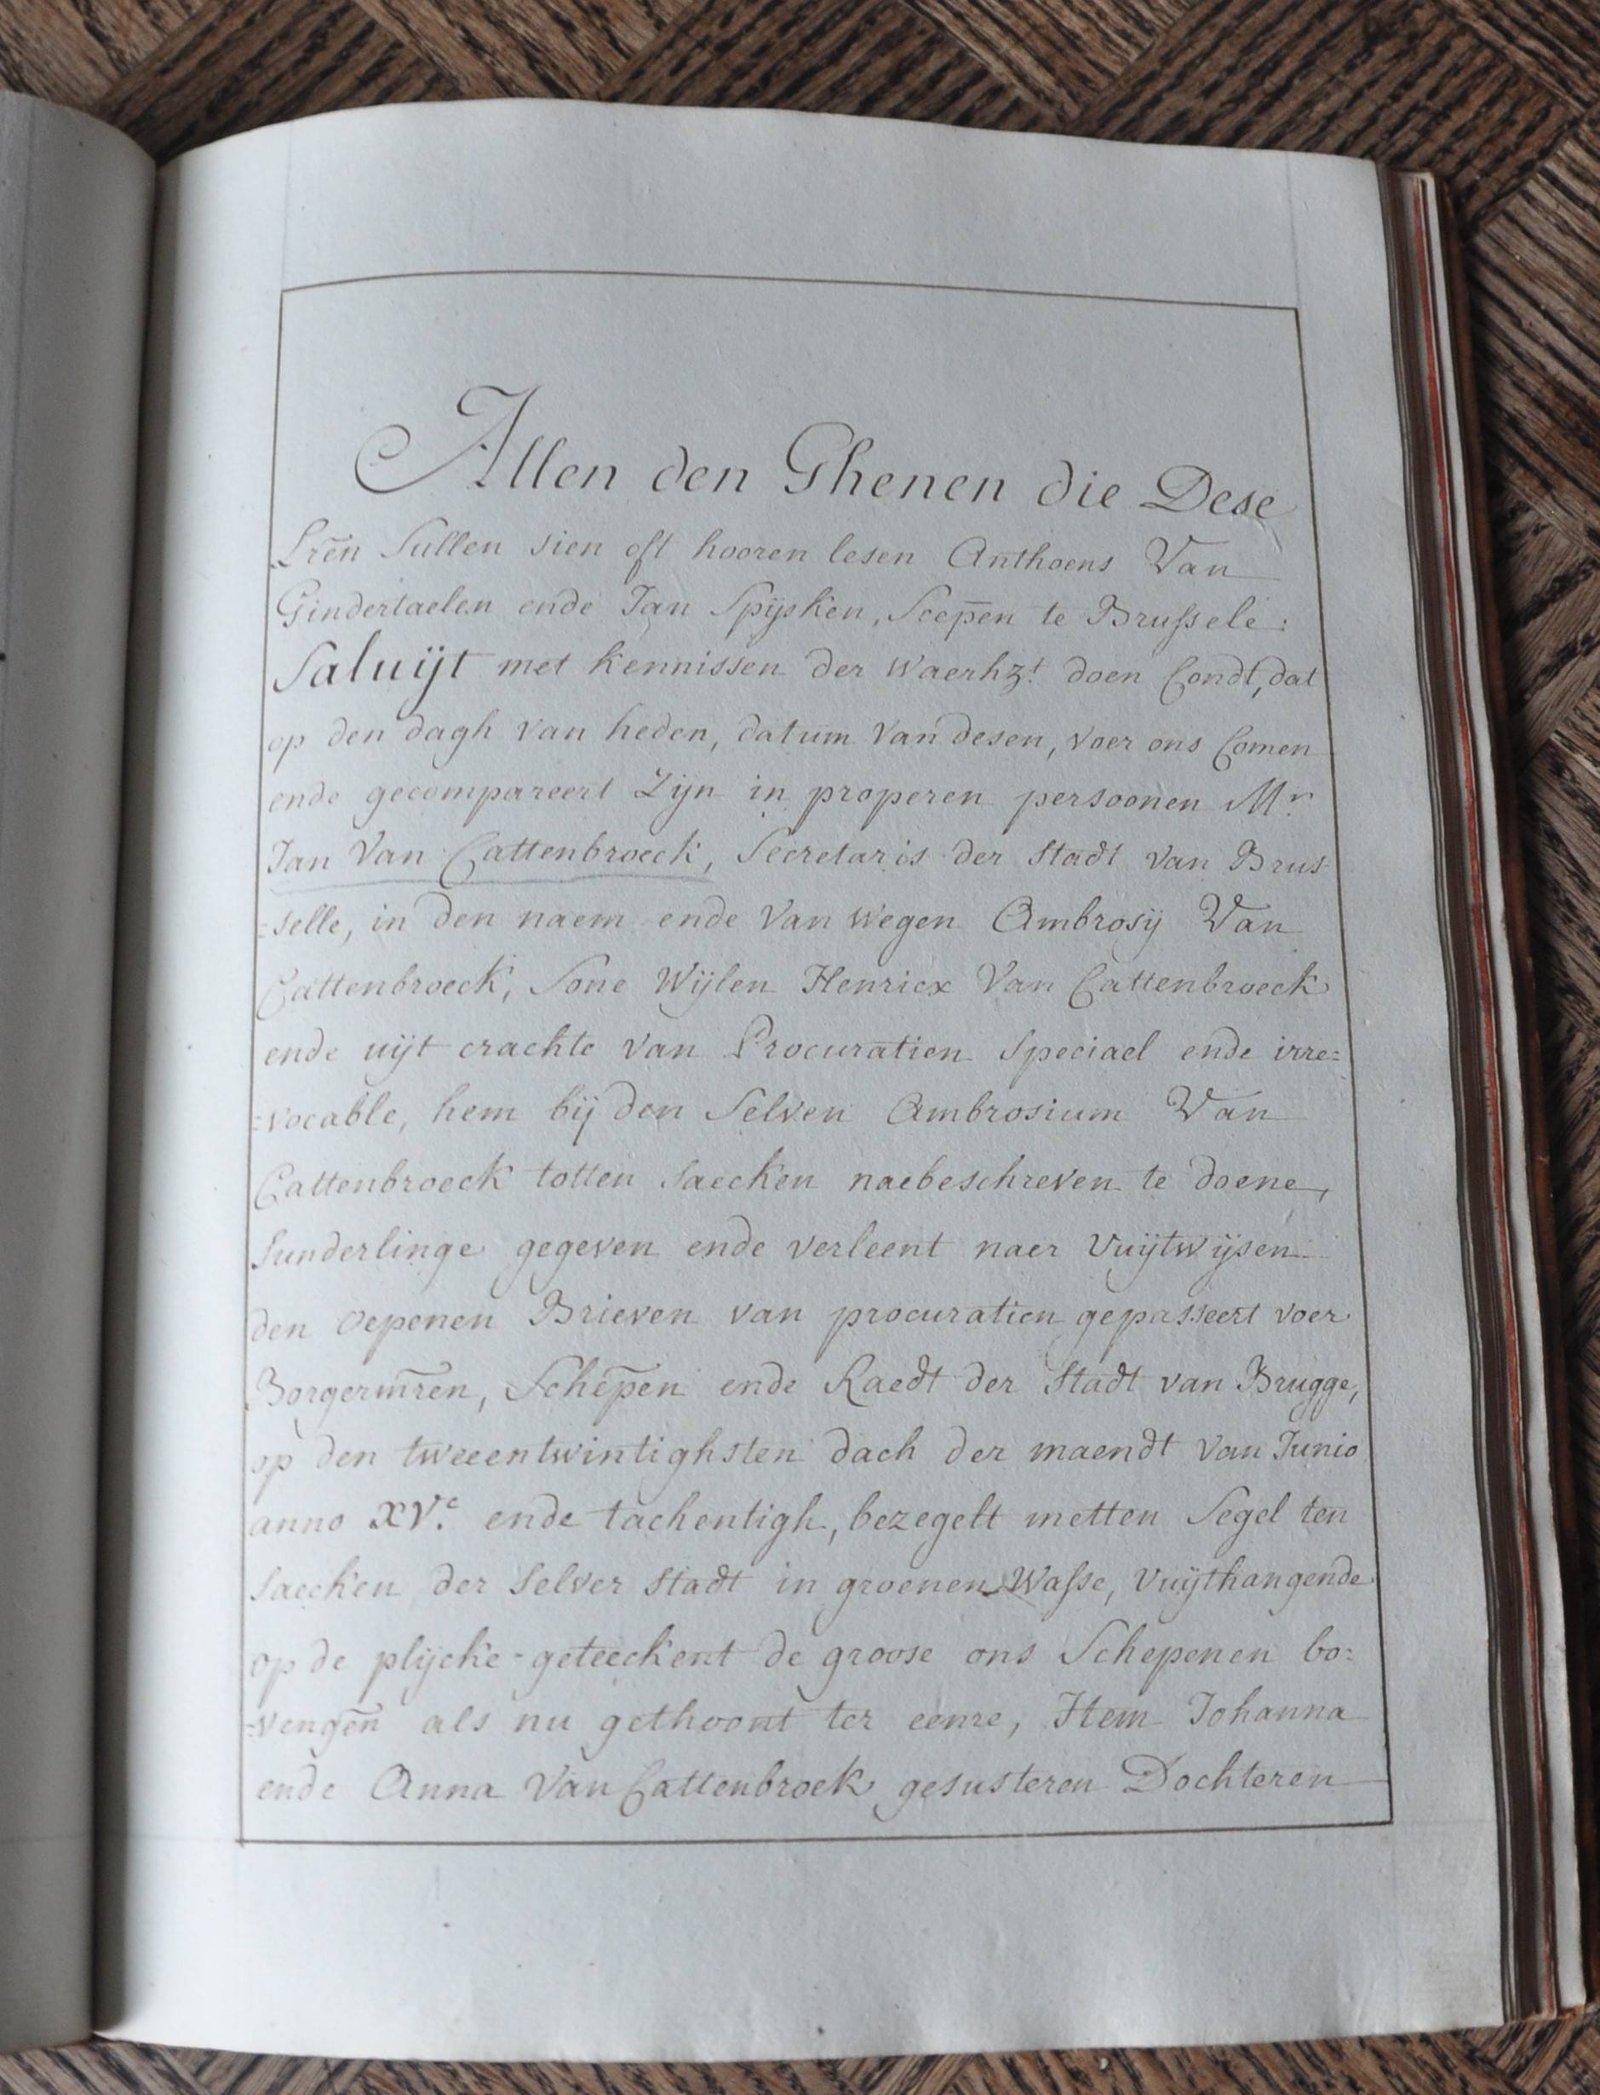 Allen den Ghenen die Dese
Lrēn Sullen sien oft hooren lesen Anthoens Van
Gindertaelen ende Jan Spijsken, Scepēn te Brussele:
Saluijt met kennissen der waerhzt. doen Condt, dat
op den dagh van heden, datum van desen, voer ons Comen
ende gecompareert Zijn in properen persoonen Mr.
Jan Van Cattenbroeck, Secretaris der Stadt van Brus-
=selle, in den naem ende van wegen Ambrosij Van
Cattenbroeck, Sone Wijlen Henricx Van Cattenbroeck
ende uijt crachte van Procuratien Speciael ende irre=
=vocable, hem bij den Selven Ambrosium Van
Cattenbroeck totten Saecken naebeschreven te doene,
Sunderlinge gegeven ende verleent naer vuijtwijsen
den oepenen Brieven van procuratien gepasseert voer
Borgerm̄ren, Schep̄en ende Raedt der Stadt van Brugge,
op den tweeentwintighsten dach der maendt van Junio
anno XVc. ende tachentigh, bezegelt metten Segel ten
Saecken der Selver Stadt in groenen Wasse, vuijthangende
op de plijcke - geteeckent de groose ons Schepenen bo:
=vengēn als nu gethoont ter eenre, Item Johanna
ende Anna Van Cattenbroek gesusteren Dochteren